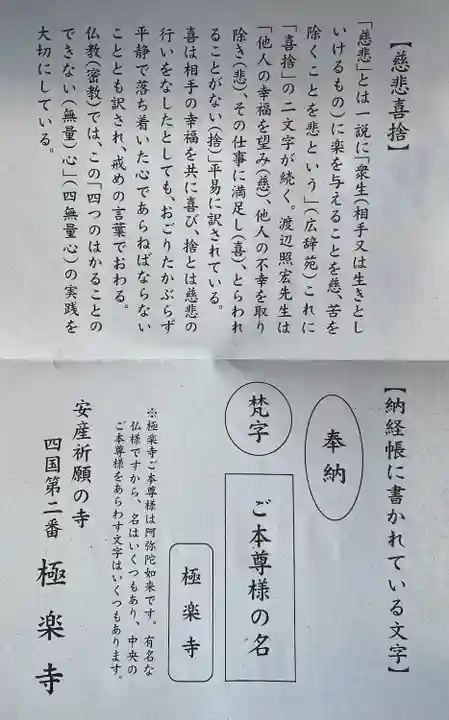 【慈悲喜捨】
「慈悲」とは一説に「衆生(相手又は生きとし
いけるもの)に楽を与えることを慈、苦を
除くことを悲という」(広辞苑)これに
「喜捨」の二文字が続く。渡辺照宏先生は
「他人の幸福を望み(慈)、他人の不幸を取り
除き(悲)、その仕事に満足し(喜)、とらわれ
ることがない(捨)」平易に訳されている。
喜は相手の幸福を共に喜び、捨とは慈悲の
行いをなしたとしても、おごりたかぶらず
平静で落ち着いた心であらねばならない
こととも訳され、戒めの言葉でおわる。
仏教(密教)では、この「四つのはかることの
できない(無量)心」(四無量心)の実践を
大切にしている。
【納経帳に書かれている文字】
奉納
梵字
ご本尊様の名
極楽寺
※極楽寺ご本尊様は阿弥陀如来です。有名な
仏様ですから、名はいくつもあり、中央の
ご本尊様をあらわす文字はいくつもあります。
安産祈願の寺
四国第二番 極楽寺